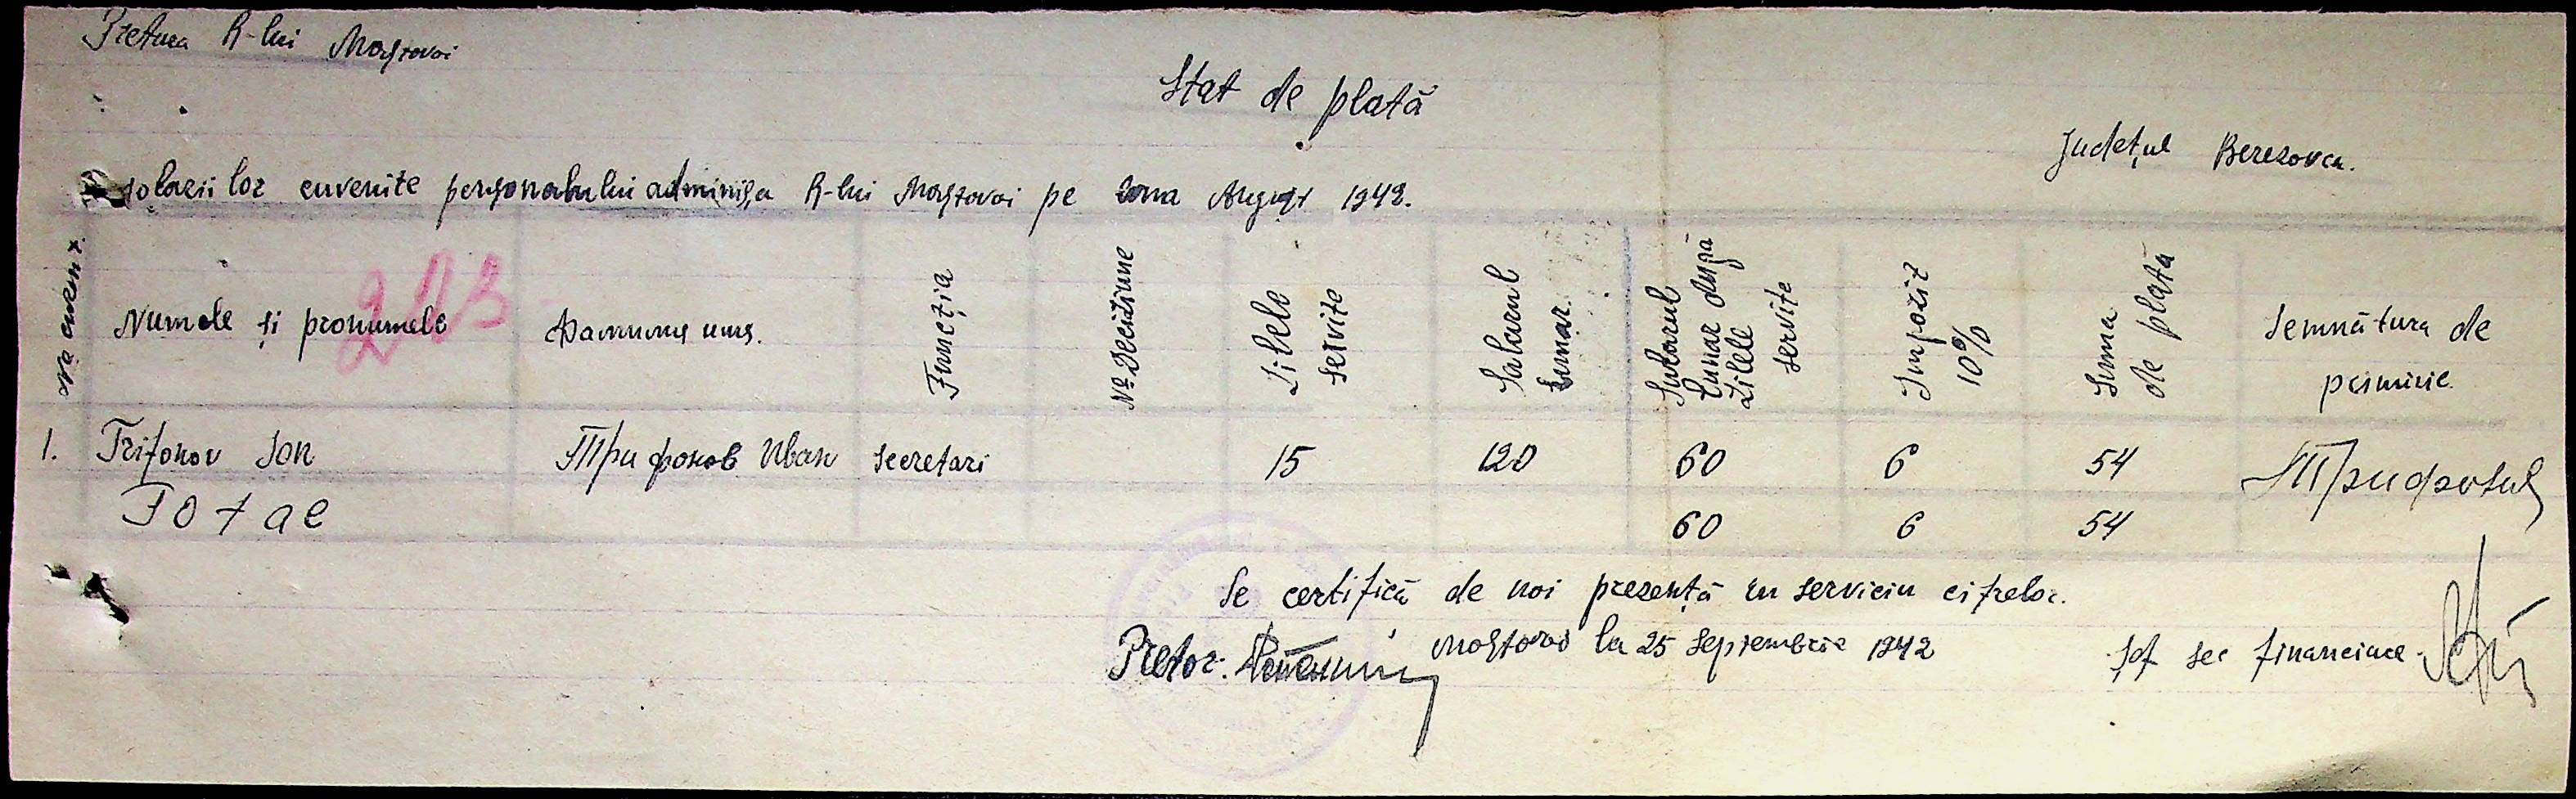 Pretura R-lui Mostovoi
Stat de plată
Județul Berezovca.
solarii lor cuvenite personalului administ,a R-lui Mostovoi pe luna August 1942.
No curent
Numele și pronumele
203
Фамилия имя.
Funcția
No Decitiune
Zilele servite
Salarul lunar.
Salarul lunar după zilele servite
Impozit 10%
Suma de plată
Semnătura de primirie.
1. Trifonov Ion Трифонов Иван secretari 15 120 60 6 54 Трифонов
Total 60 6 54
Se certifică de noi prezență în serviciu cifrelor.
Pretor. Mostovoi la 25 Septembrie 1942 Șef sec financiare